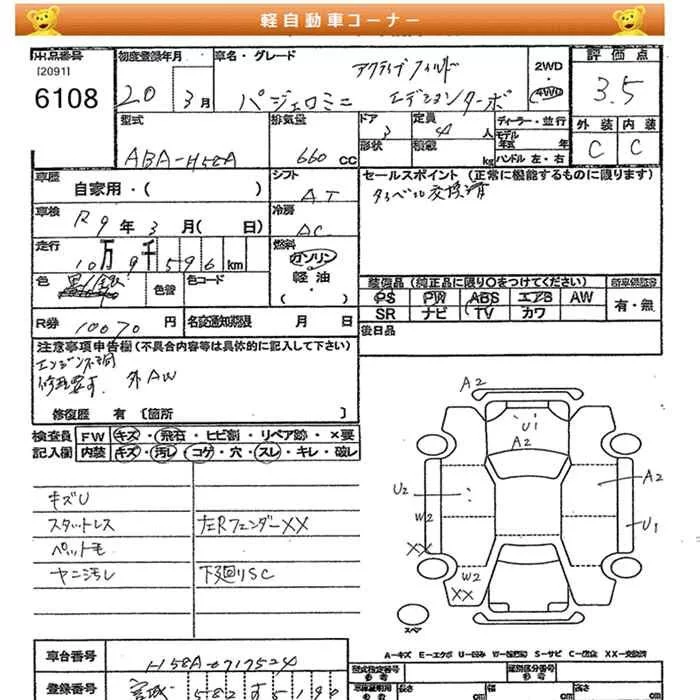 軽自動車コーナー
出品番号
[2091]
6108
初度登録年月
20 3月
車名・グレード
パジェロミニ アクティブフィールド エディションターボ
2WD
4WD
評価点
3.5
型式
ABA-H58A
排気量
660 CC
ドア
3
形状
定員
4 人
積載
kg
ディーラー・並行
モデル年式 年
ハンドル 左・右
外装 内装
C C
車歴
自家用・( )
シフト
AT
セールスポイント (正常に機能するものに限ります)
タイベル交換済
車検
R9年 3月( 日)
冷房
AC
走行
10万9千596km
燃料
ガソリン
軽油
( ・ )
色
色替
色コード
装備品 (純正品に限り〇をつけてください)
PS PW ABS エアB AW
SR ナビ TV カワ
新車保証書
有・無
R券 10070 円
名変通知期限 月 日
後日品
注意事項申告欄 (不具合内容等は具体的に記入して下さい)
エンジン不調
修理要す. 外AW
修復歴 有 [箇所 ]
検査員 FW キズ・飛石・ヒビ割・リペア跡・×要
記入欄 内装 キズ・汚レ・コゲ・穴・スレ・キレ・破レ
キズU
スタットレス
ペット毛
ヤニ汚レ
左Rフェンダー××
下廻りSC
A2
U1
A2
U2
A2
W2
U1
××
W2
××
スペア
A-キズ E-エクボ U-凹み W-補修跡 S-サビ C-腐食 XX-交換済
車台番号
H58A-0717524
登録番号
宮城 582 す 5190
型式指定番号
参考
類別区分番号
参考
長さ
cm
幅
cm
高さ
cm